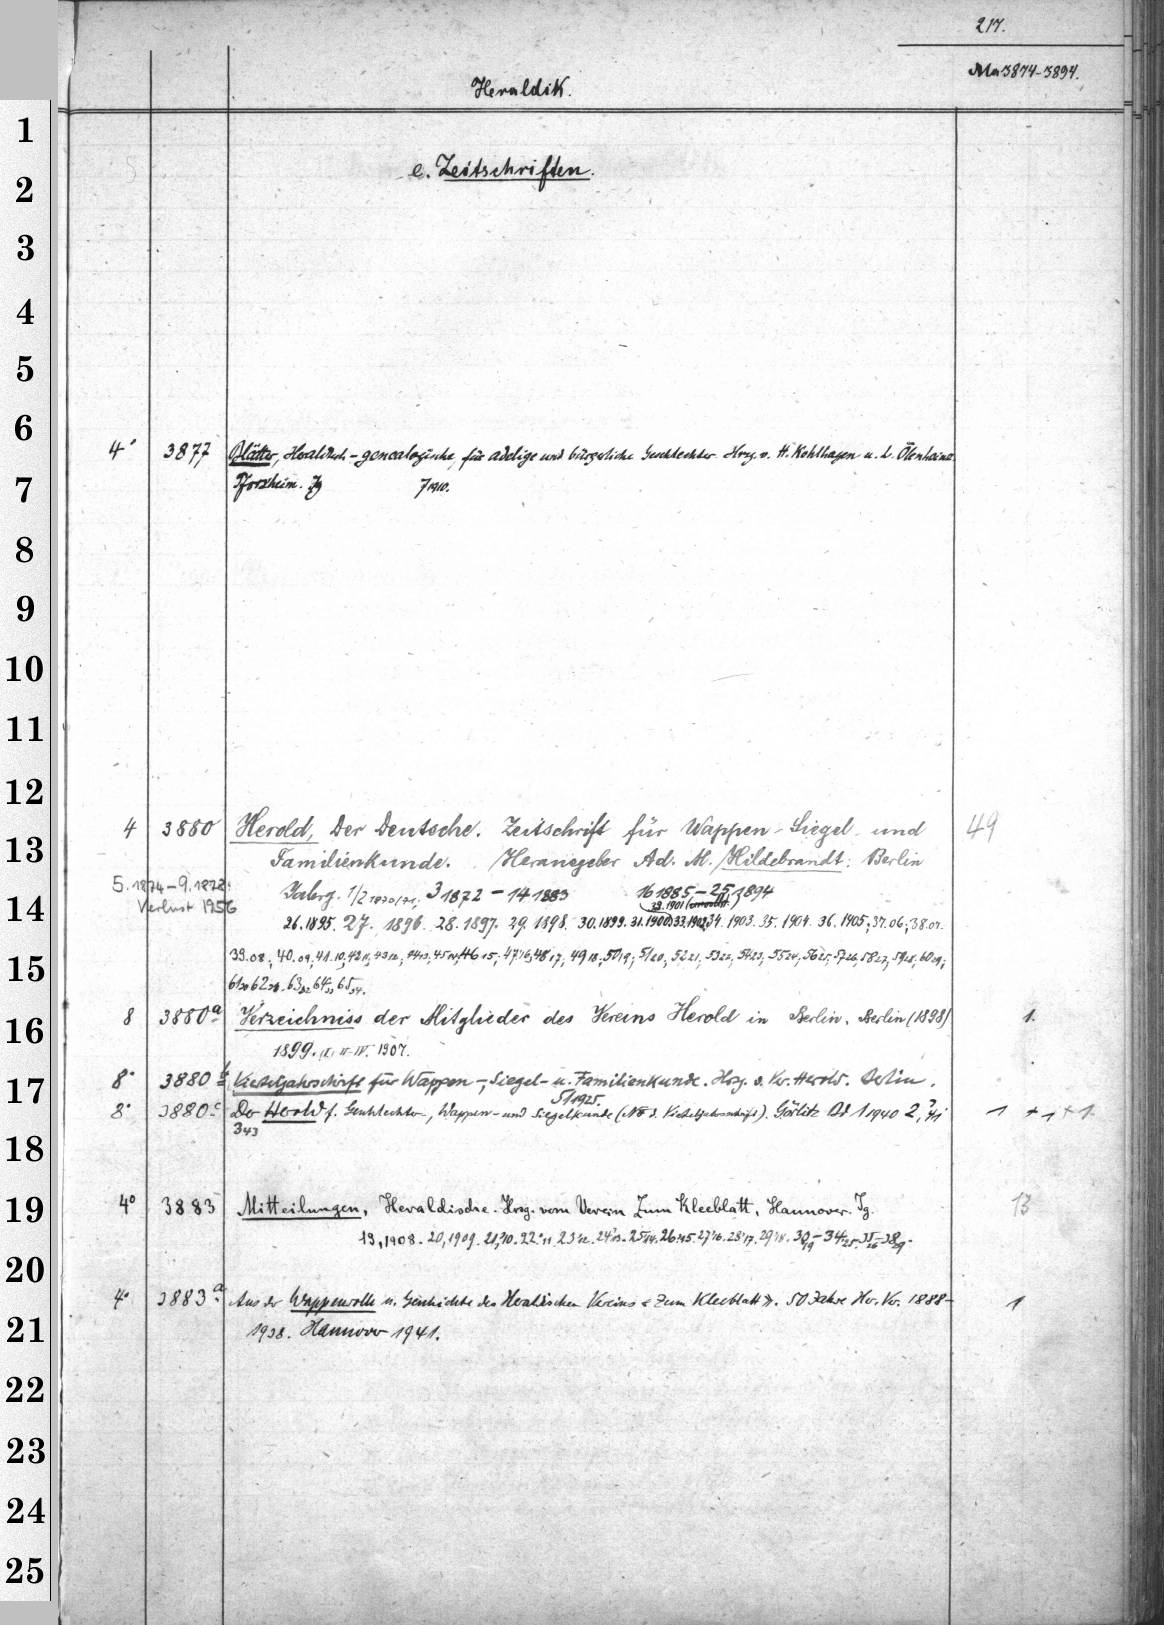 217.
Ma 3874-3894.
Heraldik.
1
e. Zeitschriften.
2
3
4
5
6
4° 3877 Blätter, Heraldisch-genealogische, für adelige und bürgerliche Geschlechter. Hrsg. v. H. Kohlhagen u. L. Ölenheinz.
7
Pforzheim. Jg 7 1910.
8
9
10
11
12
4 3880 Herold, Der Deutsche. Zeitschrift für Wappen- Siegel- und 49
13
Familienkunde. Herausgeber Ad. M. Hildebrandt. Berlin
5. 1874-9. 1878: Jahrg. 1/2 1870/71, 3 1872 - 14 1883 16 1885 - 25 1894
14
Verlust 1956
26. 1895. 27. 1896. 28. 1897. 29. 1898. 30. 1899. 31. 1900. 33. 1902. 34. 1903. 35. 1904. 36. 1905; 37. 06; 38. 07.
15
39. 08; 40. 09; 41. 10, 42 11, 43 12, 44 13, 45 14, 46 15, 47 16, 48 17, 49 18, 50 19, 51 20, 52 21, 53 22, 54 23, 55 24, 56 25, 57 26, 58 27, 59 28, 60 29,
61 30 62 63 64 65 34.
16
8 3880a Verzeichniss der Mitglieder des Vereins Herold in Berlin. Berlin (1898) 1.
1899. 1907.
17
8° 3880b Vierteljahrschrift für Wappen-, Siegel- u. Familienkunde. Hrsg. v. Ver. Herold. Berlin.
51 1925.
8° 3880c Der Herold f. Geschlechter-, Wappen- und Siegelkunde (NF d. Vierteljahrsschrift). Görlitz Bd 1 1940 2, 41 1 + 1 + 1
3 43
18
19
4° 3883 Mitteilungen, Heraldische. Hrsg. vom Verein Zum Kleeblatt, Hannover. Jg. 13
19, 1908. 20, 1909. 21, 10. 22 11 23 12. 24 13. 25 14. 26 15. 27 16. 28 17. 29 18. 30 19 - 34 25. 35 26 - 38 29.
20
4° 3883a Aus der Wappenrolle u. Geschichte des Heraldischen Vereins «Zum Kleeblatt». 50 Jahre Her. Ver. 1888- 1
21
1938. Hannover 1941.
22
23
24
25